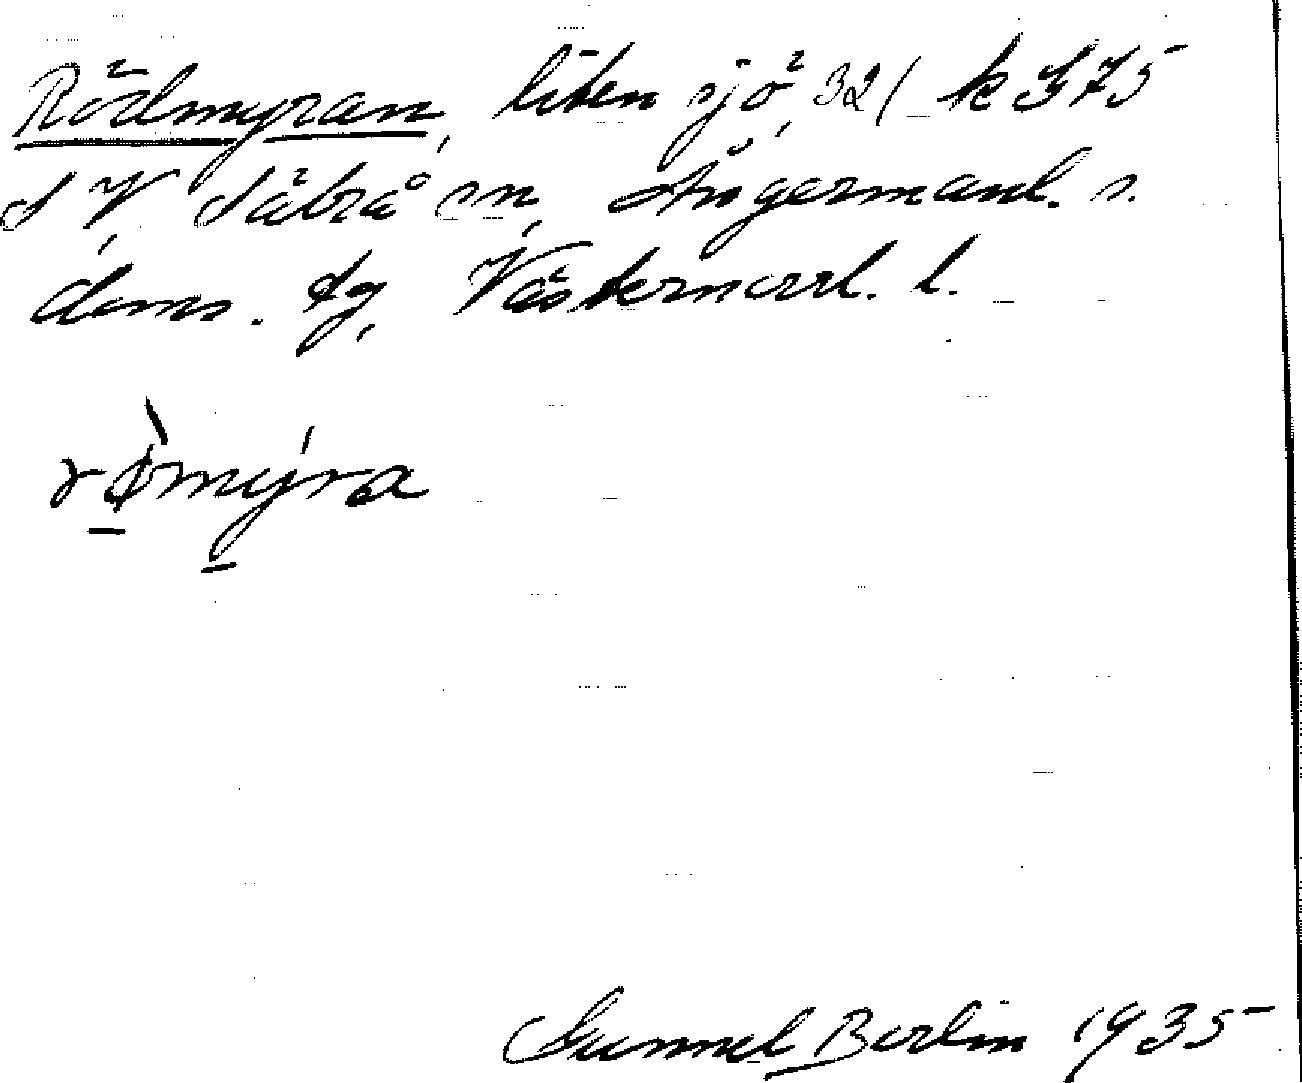 Rödmyran, liten sjö, 321 k 375
S V, Säbrå sn, Ångermanl. s.
doms. tg, Västernorrl. l.
rømýra
Gunnel Berlin 1935